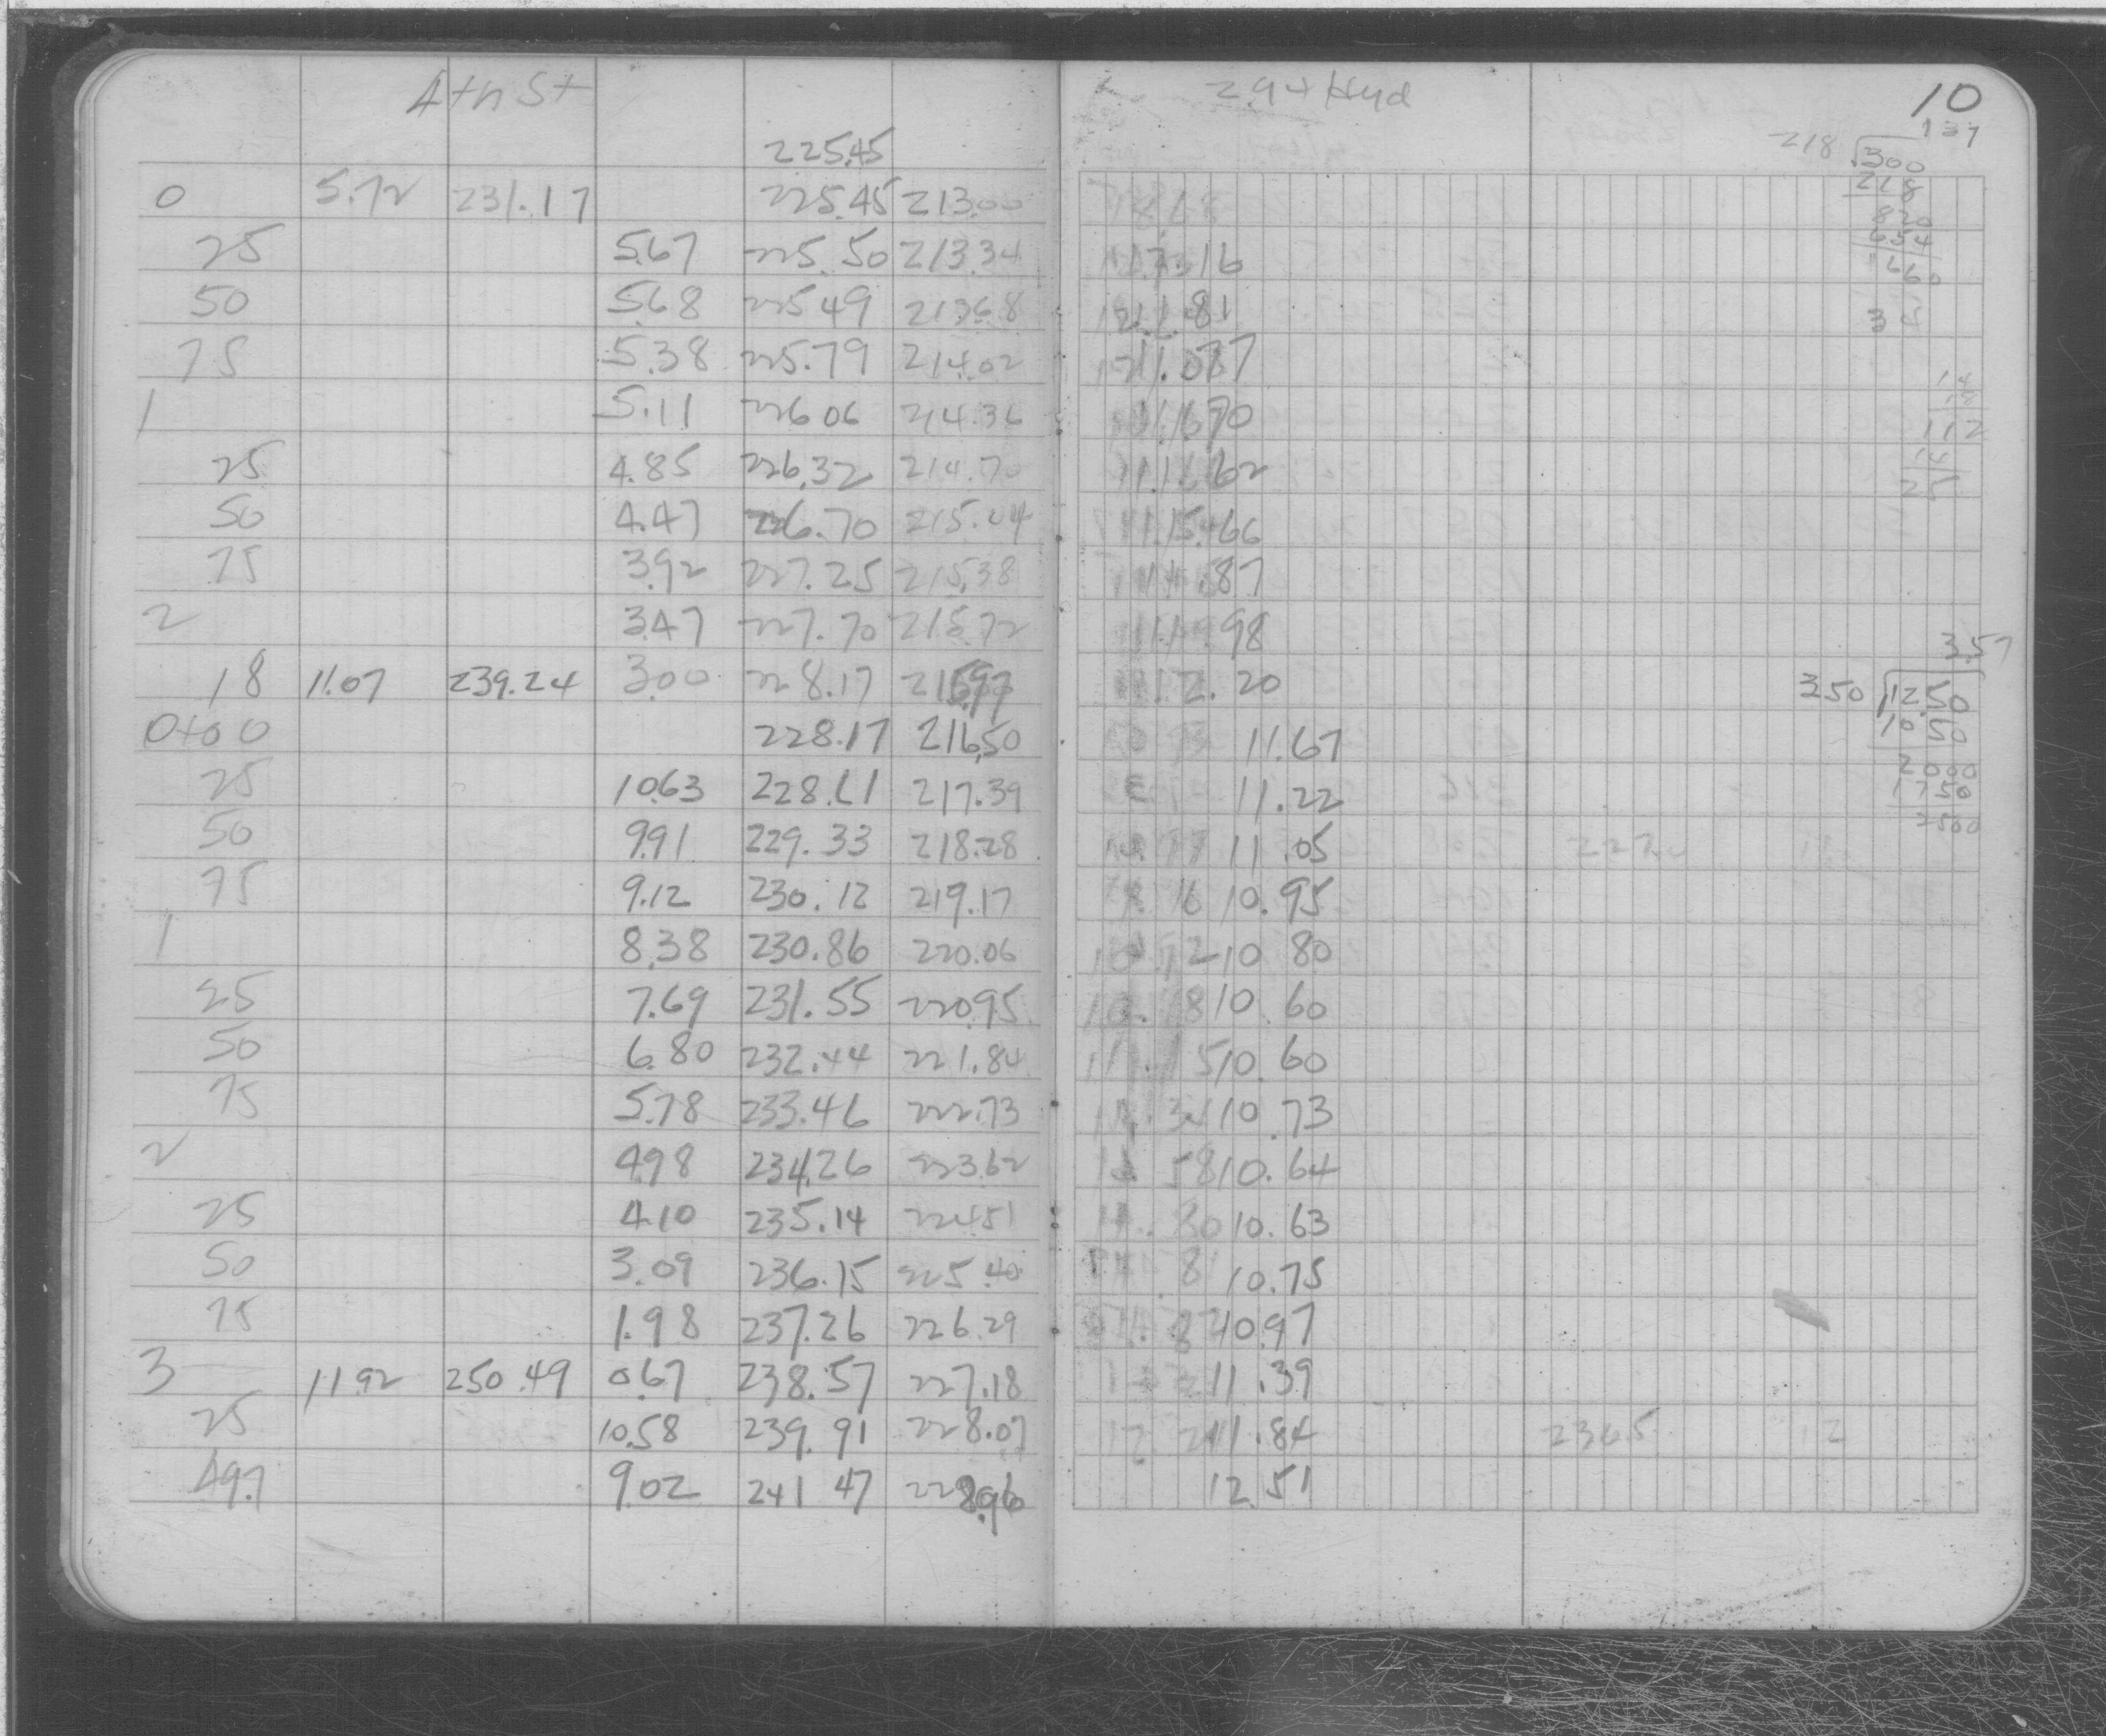 4th St 29+ Hyd 10
225.45
0 5.72 231.17 225.45 213.00
25 5.67 225.50 213.34 .16
50 5.68 225.49 213.68 11.81
75 5.38 225.79 214.02 11.77
1 5.11 226.06 214.36 11.70
25 4.85 226.32 214.70 11.62
50 4.47 226.70 215.04 11.66
75 3.92 227.25 215.38 11.87
2 3.47 227.70 215.72 11.98
18 11.07 239.24 3.00 228.17 215.97 12.20
0+00 228.17 216.50 11.67
25 10.63 228.61 217.39 11.22
50 9.91 229.33 218.28 11.05
75 9.12 230.12 219.17 10.95
1 8.38 230.86 220.06 10.80
25 7.69 231.55 220.95 10.60
50 6.80 232.44 221.84 10.60
75 5.78 233.46 222.73 10.73
2 4.98 234.26 223.62 10.64
25 4.10 235.14 224.51 10.63
50 3.09 236.15 225.40 10.75
75 1.98 237.26 226.29 10.97
3 11.92 250.49 0.67 238.57 227.18 11.39
25 10.58 239.91 228.07 11.84 236.5 12
49.7 9.02 241.47 228.96 12.51
137
218 300
218
820
654
1660
112
25
3.57
350 12.50
10.50
2000
1750
2500